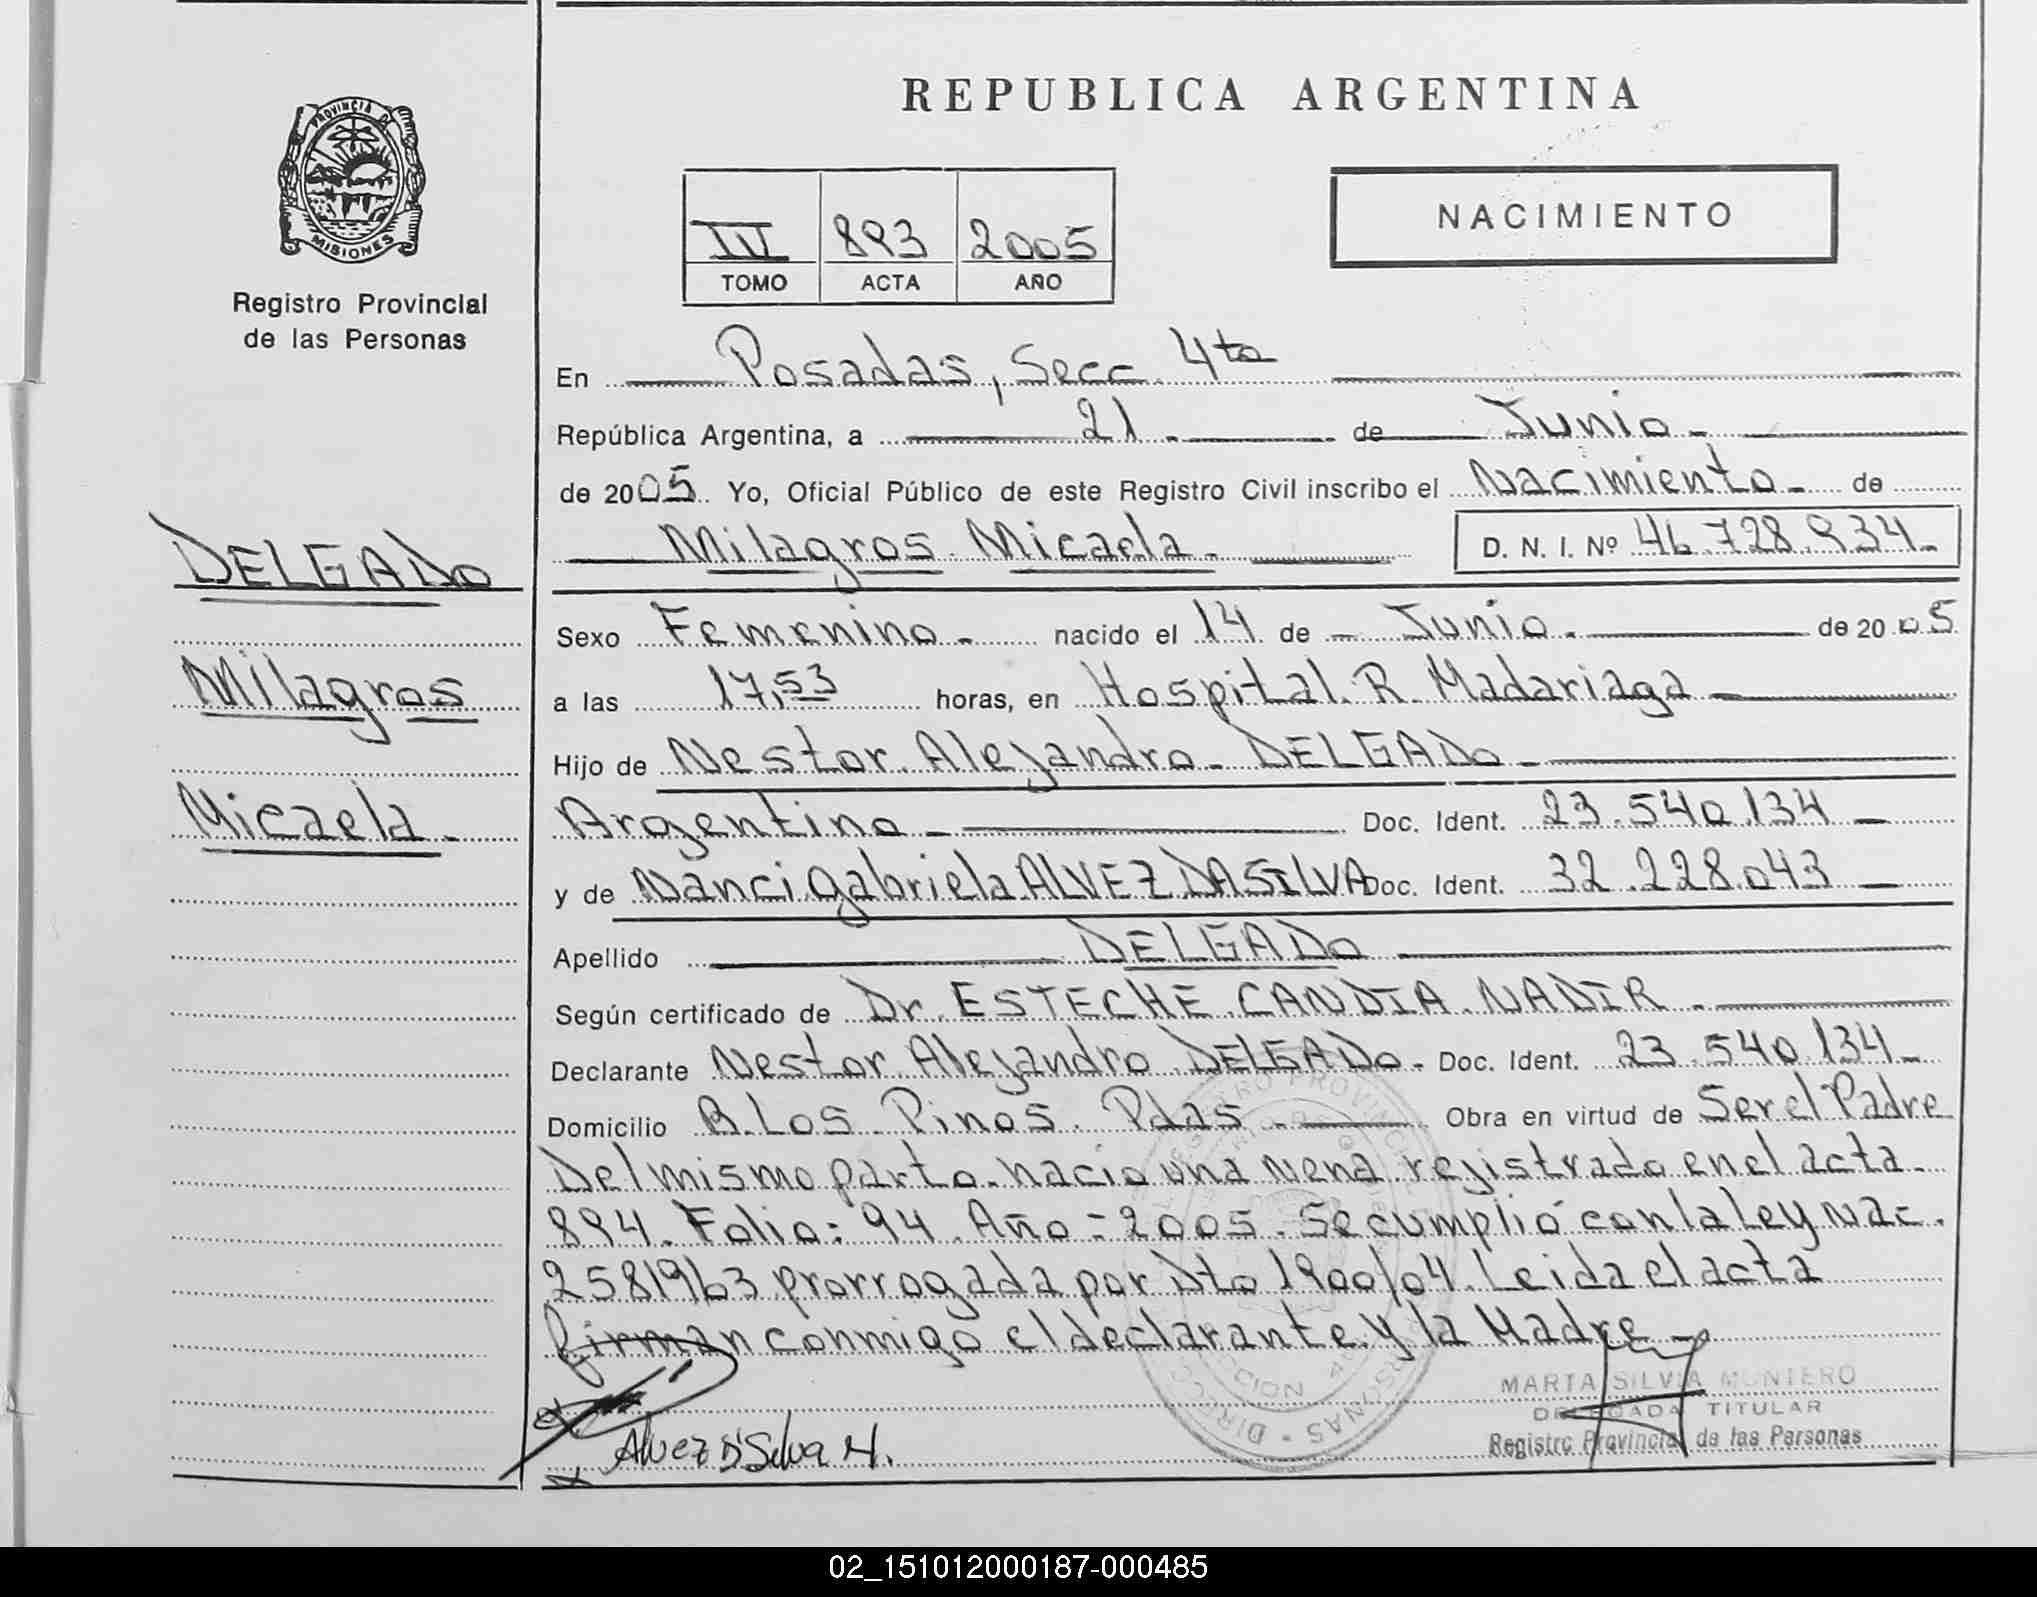 PROVINCIA DE
MISIONES
Registro Provincial
de las Personas
DELGADO
Milagros
Micaela.
REPUBLICA ARGENTINA
III 893 2005
TOMO ACTA AÑO
NACIMIENTO
En Posadas, Secc. 4ta
República Argentina, a 21. de Junio.
de 2005. Yo, Oficial Público de este Registro Civil inscribo el Nacimiento de
Milagros Micaela. D. N. I. Nº 46.728.934.
Sexo Femenino. nacido el 14 de Junio. de 2005
a las 17,53 horas, en Hospital R. Madariaga
Hijo de Nestor Alejandro DELGADO
Argentino Doc. Ident. 23.540.134
y de Nanci Gabriela ALVEZ DASILVA Doc. Ident. 32.228.043
Apellido DELGADO
Según certificado de Dr. ESTECHE CANDIA NADIR
Declarante Nestor Alejandro DELGADO. Doc. Ident. 23.540.134
Domicilio B. Los Pinos Pdas Obra en virtud de Ser el Padre
Del mismo parto nacio una nena rejistrado en el acta
894. Folio: 94 Año = 2005. Se cumplió con la Ley Nac.
25819/63 prorrogada por Dto 1900/04. Leida el acta
firman conmigo el declarante y la Madre
Alvez D'Silva N.
MARTA SILVIA MONTERO
DELEGADA TITULAR
Registro Provincial de las Personas
02_151012000187-000485